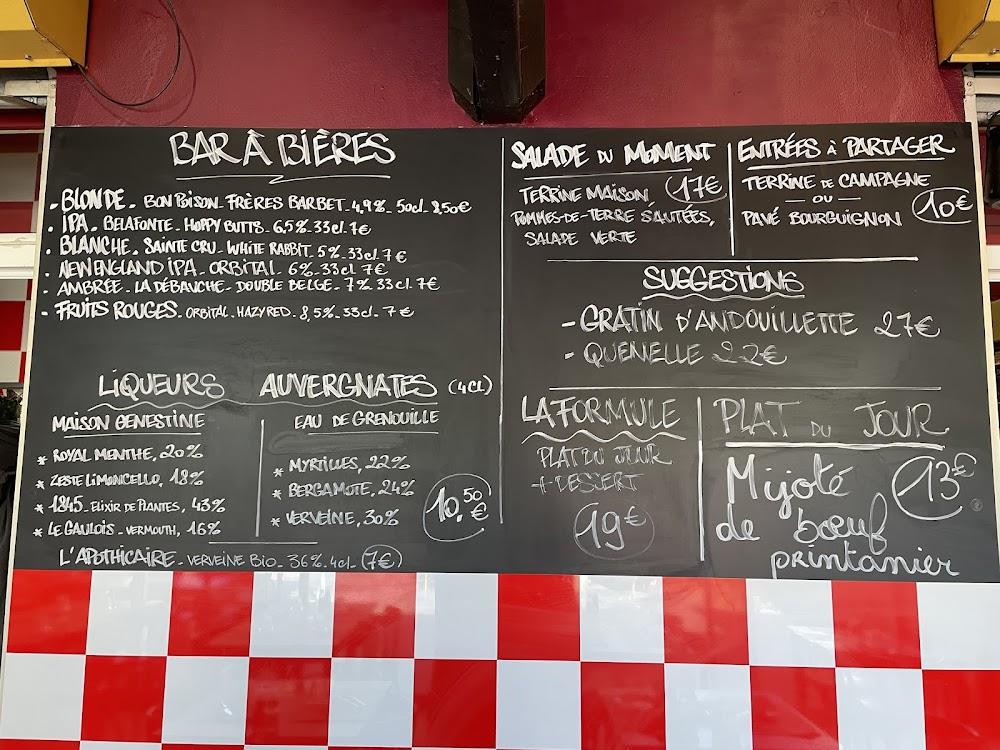 BAR À BIÈRES
- BLONDE - BON POISON - FRÈRES BARBET - 4,9% - 50cl - 8,50€
- IPA - BELAFONTE - HOPPY BUTTS - 6,5% 33cl. 7€
- BLANCHE - SAINTE CRU - WHITE RABBIT - 5% - 33cl. 7€
- NEW ENGLAND IPA - ORBITAL - 6% - 33cl 7€
- AMBRÉE - LA DÉBAUCHE - DOUBLE BELGE - 7% 33cl. 7€
- FRUITS ROUGES - ORBITAL - HAZY RED - 8,5% - 33cl - 7€
LIQUEURS AUVERGNATES (4CL)
MAISON GENESTINE
* ROYAL MENTHE, 20%
* ZESTE LIMONCELLO, 18%
* 1845 - ELIXIR DE PLANTES, 43%
* LE GAULOIS - VERMOUTH, 16%
EAU DE GRENOUILLE
* MYRTILLES, 22%
* BERGAMOTE, 24%
* VERVEINE, 30%
10,50€
L'APOTHICAIRE - VERVEINE BIO - 36% - 4cl - 7€
SALADE DU MOMENT
TERRINE MAISON, 17€
POMMES-DE-TERRE SAUTÉES,
SALADE VERTE
ENTRÉES À PARTAGER
TERRINE DE CAMPAGNE
— OU —
PAVÉ BOURGUIGNON
10€
SUGGESTIONS
- GRATIN D'ANDOUILLETTE 27€
- QUENELLE 22€
LA FORMULE
PLAT DU JOUR
+ DESSERT
19€
PLAT DU JOUR
Mijoté 13€
de bœuf
printanier